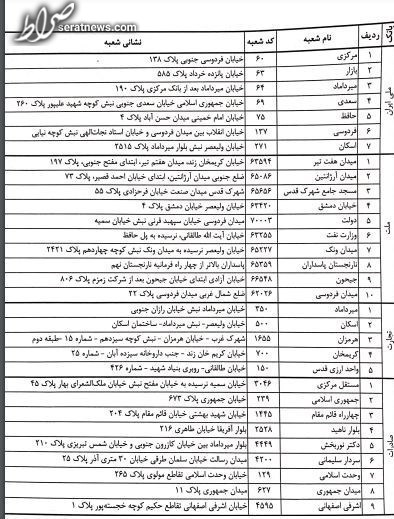 صراط
seratnews.com
بانک ردیف نام شعبه کد شعبه نشانی شعبه
ملی ایران
۱ مرکزی ۶۰ خیابان فردوسی جنوبی پلاک ۱۳۸
۲ بازار ۶۳ خیابان پانزده خرداد پلاک ۵۸۵
۳ میرداماد ۶۴ خیابان میرداماد بعد از بانک مرکزی پلاک ۱۹۰
۴ سعدی ۶۹ خیابان جمهوری اسلامی خیابان سعدی جنوبی نبش کوچه شهید علیپور پلاک ۲۶۰
۵ حافظ ۷۵ خیابان امام خمینی میدان حسن آباد پلاک ۴
۶ فردوسی ۱۳۷ خیابان انقلاب بین میدان فردوسی و خیابان استاد نجات‌الهی نبش کوچه نیایی
۷ اسکان ۲۷۱ خیابان ولیعصر نبش بلوار میرداماد پلاک ۲۵۱۵
ملت
۱ میدان هفت تیر ۶۳۵۹۴ خیابان کریمخان زند، میدان هفتم تیر، ابتدای مفتح جنوبی، پلاک ۱۹۷
۲ میدان آرژانتین ۶۵۰۸۶ ضلع جنوبی میدان آرژانتین، ابتدای خیابان احمد قصیر، پلاک ۷۳
۳ مسجد جامع شهرک قدس ۶۵۶۵۶ شهرک قدس میدان صنعت خیابان فرحزادی پلاک ۵۵
۴ خیابان دمشق ۶۳۴۲۰ خیابان ولیعصر خیابان دمشق پلاک ۴
۵ دولت ۷۰۰۰۳ میدان فردوسی خیابان سپهبد قرنی نبش خیابان سمیه
۶ وزارت نفت ۶۳۲۵۵ خیابان آیت الله طالقانی، نرسیده به پل حافظ
۷ میدان ونک ۶۵۲۲۷ خیابان ولیعصر نرسیده به میدان ونک نبش کوچه چهاردهم پلاک ۲۴۲۱
۸ نارنجستان پاسداران ۶۵۳۵۹ پاسداران بالاتر از چهار راه فرمانیه نارنجستان نهم
۹ جیحون ۶۶۵۴۸ خیابان آزادی ابتدای خیابان جیحون بعد از شرکت زمزم پلاک ۸۰۶
۱۰ میدان فردوسی ۶۲۰۲۶ ضلع شمال غربی میدان فردوسی پلاک ۲۲
تجارت
۱ میرداماد ۳۵۰ خیابان میرداماد نبش خیابان رازان جنوبی
۲ اسکان ۵۰۰ خیابان ولیعصر- نبش میرداماد- ساختمان اسکان
۳ هرمزان ۱۶۵۵ شهرک غرب - خیابان هرمزان - نبش کوچه سیزدهم - شماره ۱۵ -طبقه دوم
۴ کریمخان ۷۰۰ خیابان کریم خان زند - جنب داروخانه سیزده آبان - شماره ۲۵
۵ واحد ارزی قدس ۱۵۰ خیابان طالقانی- روبری بنیاد شهید - شماره ۴۲۶
صادرات
۱ مستقل مرکزی ۳۰۴۶ خیابان سمیه نرسیده به خیابان مفتح نبش خیابان ملک‌الشعرای بهار پلاک ۴۵
۲ جمهوری اسلامی ۲۳۹ خیابان جمهوری پلاک ۶۷۳
۳ چهارراه قائم مقام ۱۴۴۵ خیابان شهید بهشتی خیابان قائم مقام پلاک ۲۰۴
۴ بلوار ناهید ۲۵۲۸ بلوار آفریقا خیابان طاهری ۲۱۶
۵ دکتر نوربخش ۴۴۴۹ بلوار میرداماد بین خیابان کازرون جنوبی و خیابان شمس تبریزی پلاک ۲۱۰
۶ سردار سلیمانی ۴۲۰۰ میدان رسالت خیابان سلمان طرقی خیابان ۳۰ متری آذر پلاک ۲۵
۷ وحدت اسلامی ۱۲۹ خیابان وحدت اسلامی تقاطع مولوی پلاک ۲۶۵
۸ میدان جمهوری ۶۲۷ میدان جمهوری پلاک ۱۱
۹ اشرفی اصفهانی ۴۵۹۵ خیابان اشرفی اصفهانی تقاطع حکیم کوچه خجسته‌پور پلاک ۱